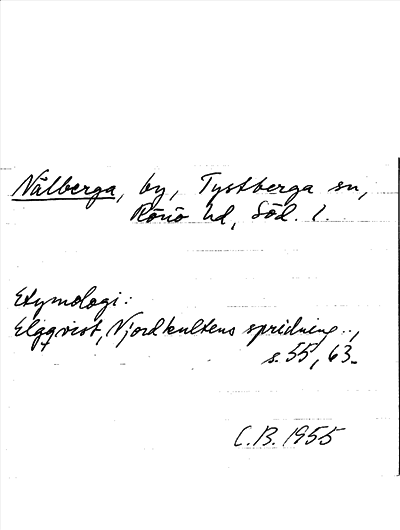 Nålberga, by, Tystberga sn,
Rönö hd, Söd. l.
Etymologi:
Elgqvist, Njordkultens spridning..,
s. 55, 63.
C.B. 1955